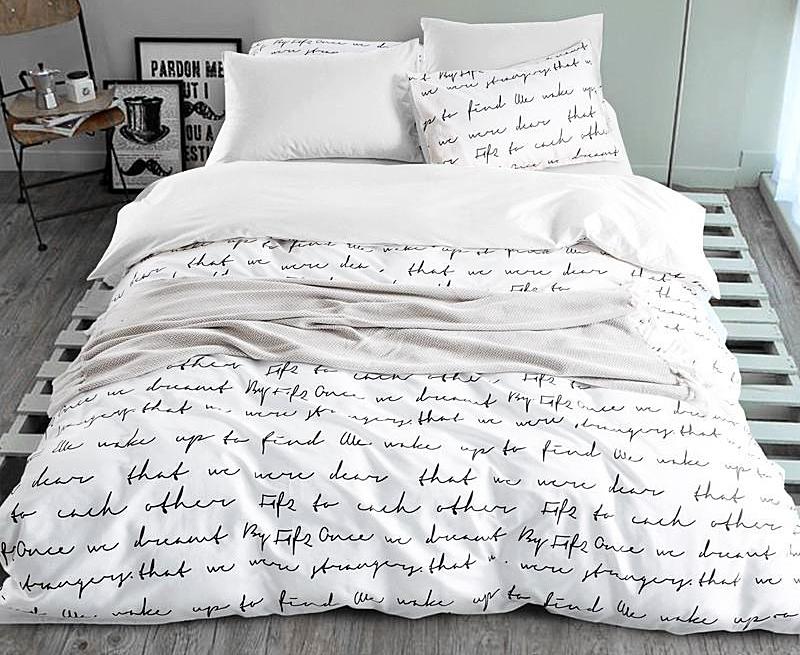 By Fifi Once we d
were stran
PARDON ME
UT I
OU A
ESTI
By Fifi
we were strangers. that w
up to find We wake up
we were dear that
Fifi to each othe
we dreamt
wake up to find We wake up to find We wake
dear, that we were dear, that we were dear that
Fifi to
other Fifi to each other, Fifi to
Once we dreamt By Fifi Once we dreamt By Fifi Once we drea
strangers. that w were strangers. that we were strangers. that
We wake up to find We wake up to find We wake up to
dear that we were dear that we were dear that we
to each other Fifi to each other Fifi to each other
Once we dreamt By Fifi Once we dreamt By Fifi Once we dreamt
strangers. that we were strangers. that we were strangers. that we
We wake up to find We wake up to find We wake up to